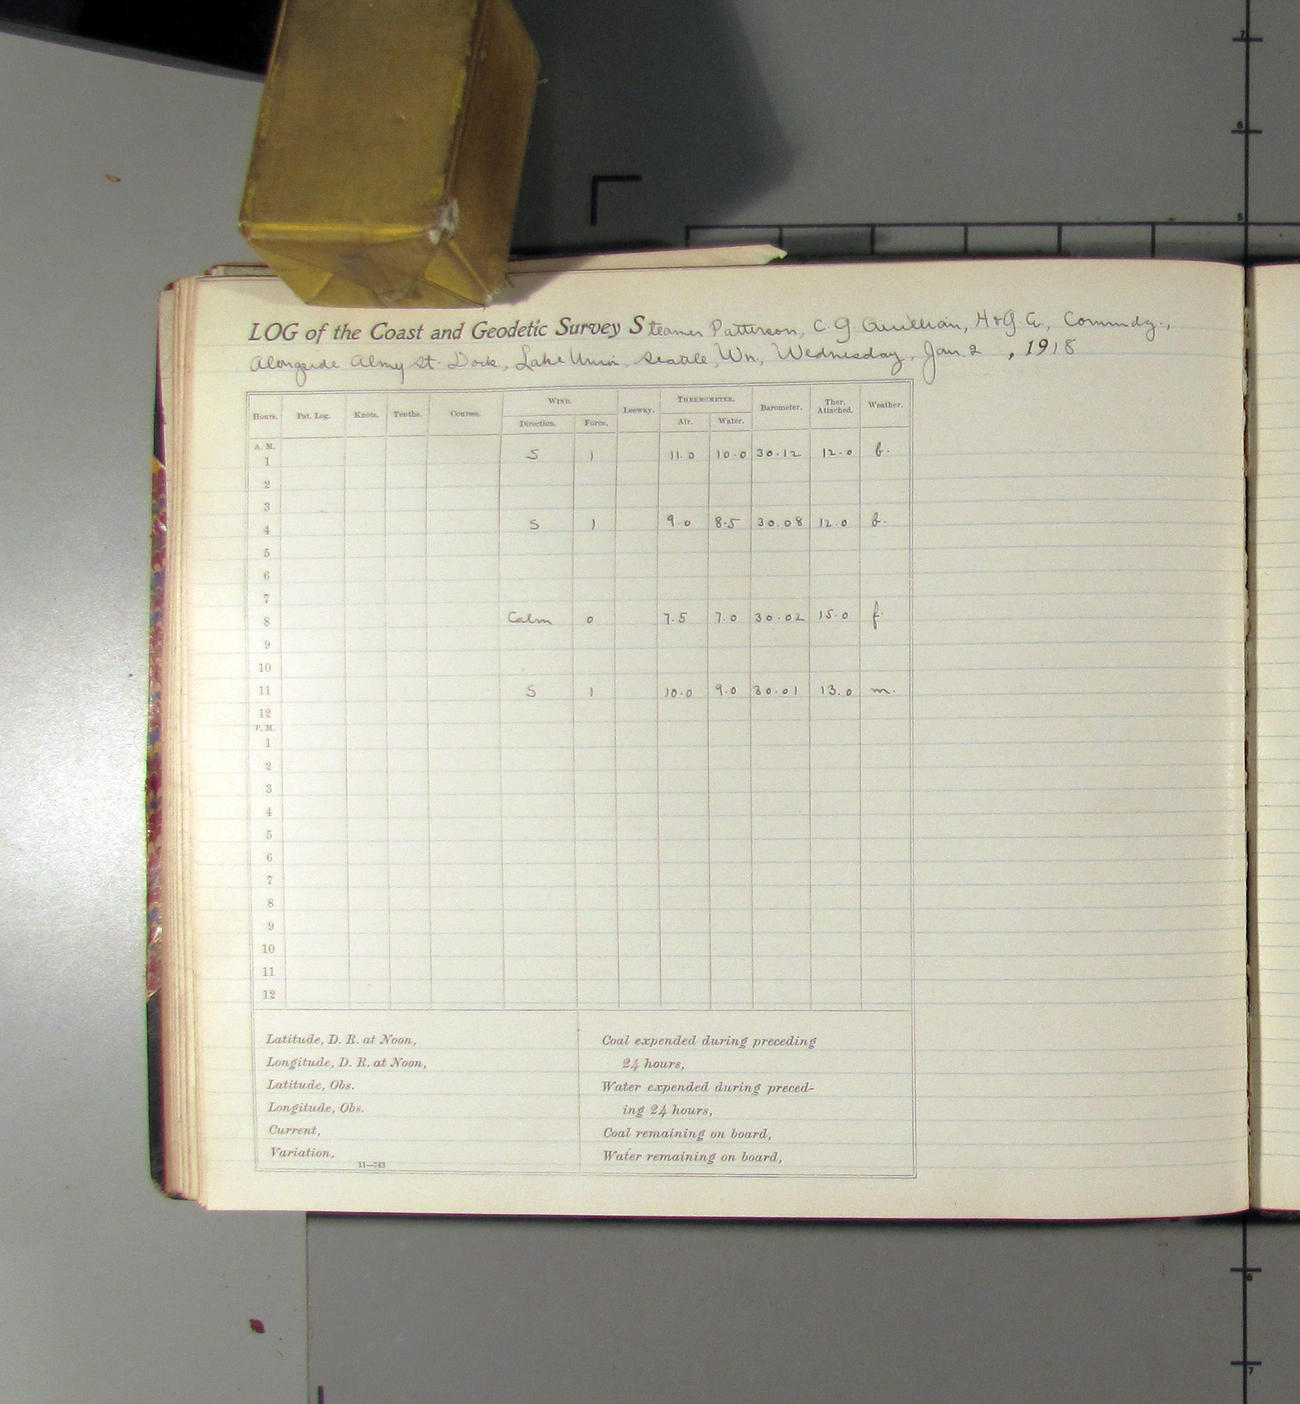 LOG of the Coast and Geodetic Survey Steamer Patterson, C. G. Quillian, H & G. E., Commdg.,
Alongside Almy St. Dock, Lake Union, Seattle, Wn., Wednesday, Jan. 2, 1918
Hours. Pat. Log. Knots. Tenths. Courses. WIND. Leeway. THERMOMETER. Barometer. Ther. Attached. Weather.
Direction. Force. Air. Water.
A. M.
1 S 1 11.0 10.0 30.12 12.0 b.
2
3
4 S 1 9.0 8.5 30.08 12.0 b.
5
6
7
8 Calm 0 7.5 7.0 30.02 15.0 f.
9
10
11 S 1 10.0 9.0 30.01 13.0 m.
12
P. M.
1
2
3
4
5
6
7
8
9
10
11
12
Latitude, D. R. at Noon,
Longitude, D. R. at Noon,
Latitude, Obs.
Longitude, Obs.
Current,
Variation,
11—743
Coal expended during preceding
24 hours,
Water expended during preced-
ing 24 hours,
Coal remaining on board,
Water remaining on board,
7
6
5
6
7